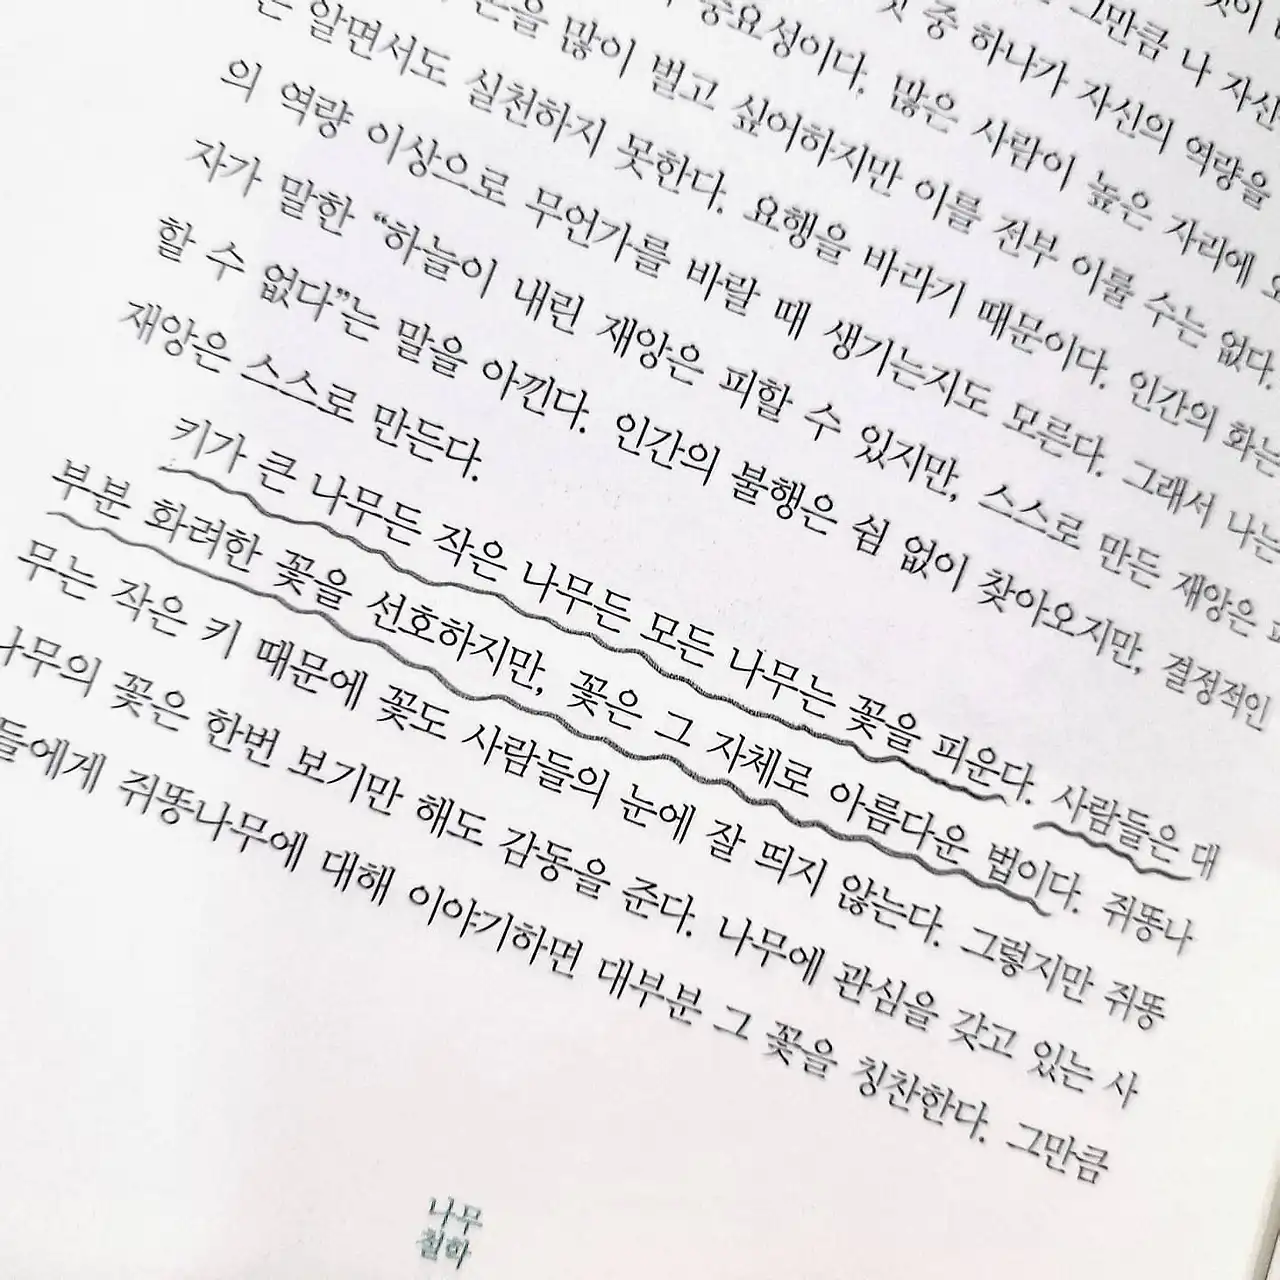 그만큼 나 자신
중 하나가 자신의 역량을
중요성이다. 많은 사람이 높은 자리에
많이 벌고 싶어하지만 이를 전부 이룰 수는 없다.
알면서도 실천하지 못한다. 요행을 바라기 때문이다. 인간의 화는
의 역량 이상으로 무언가를 바랄 때 생기는지도 모른다. 그래서 나는
자가 말한 “하늘이 내린 재앙은 피할 수 있지만, 스스로 만든 재앙은
할 수 없다”는 말을 아낀다. 인간의 불행은 쉼 없이 찾아오지만, 결정적인
재앙은 스스로 만든다.
키가 큰 나무든 작은 나무든 모든 나무는 꽃을 피운다. 사람들은 대
부분 화려한 꽃을 선호하지만, 꽃은 그 자체로 아름다운 법이다. 쥐똥나
무는 작은 키 때문에 꽃도 사람들의 눈에 잘 띄지 않는다. 그렇지만 쥐똥
나무의 꽃은 한번 보기만 해도 감동을 준다. 나무에 관심을 갖고 있는 사
들에게 쥐똥나무에 대해 이야기하면 대부분 그 꽃을 칭찬한다. 그만큼
나무
철학